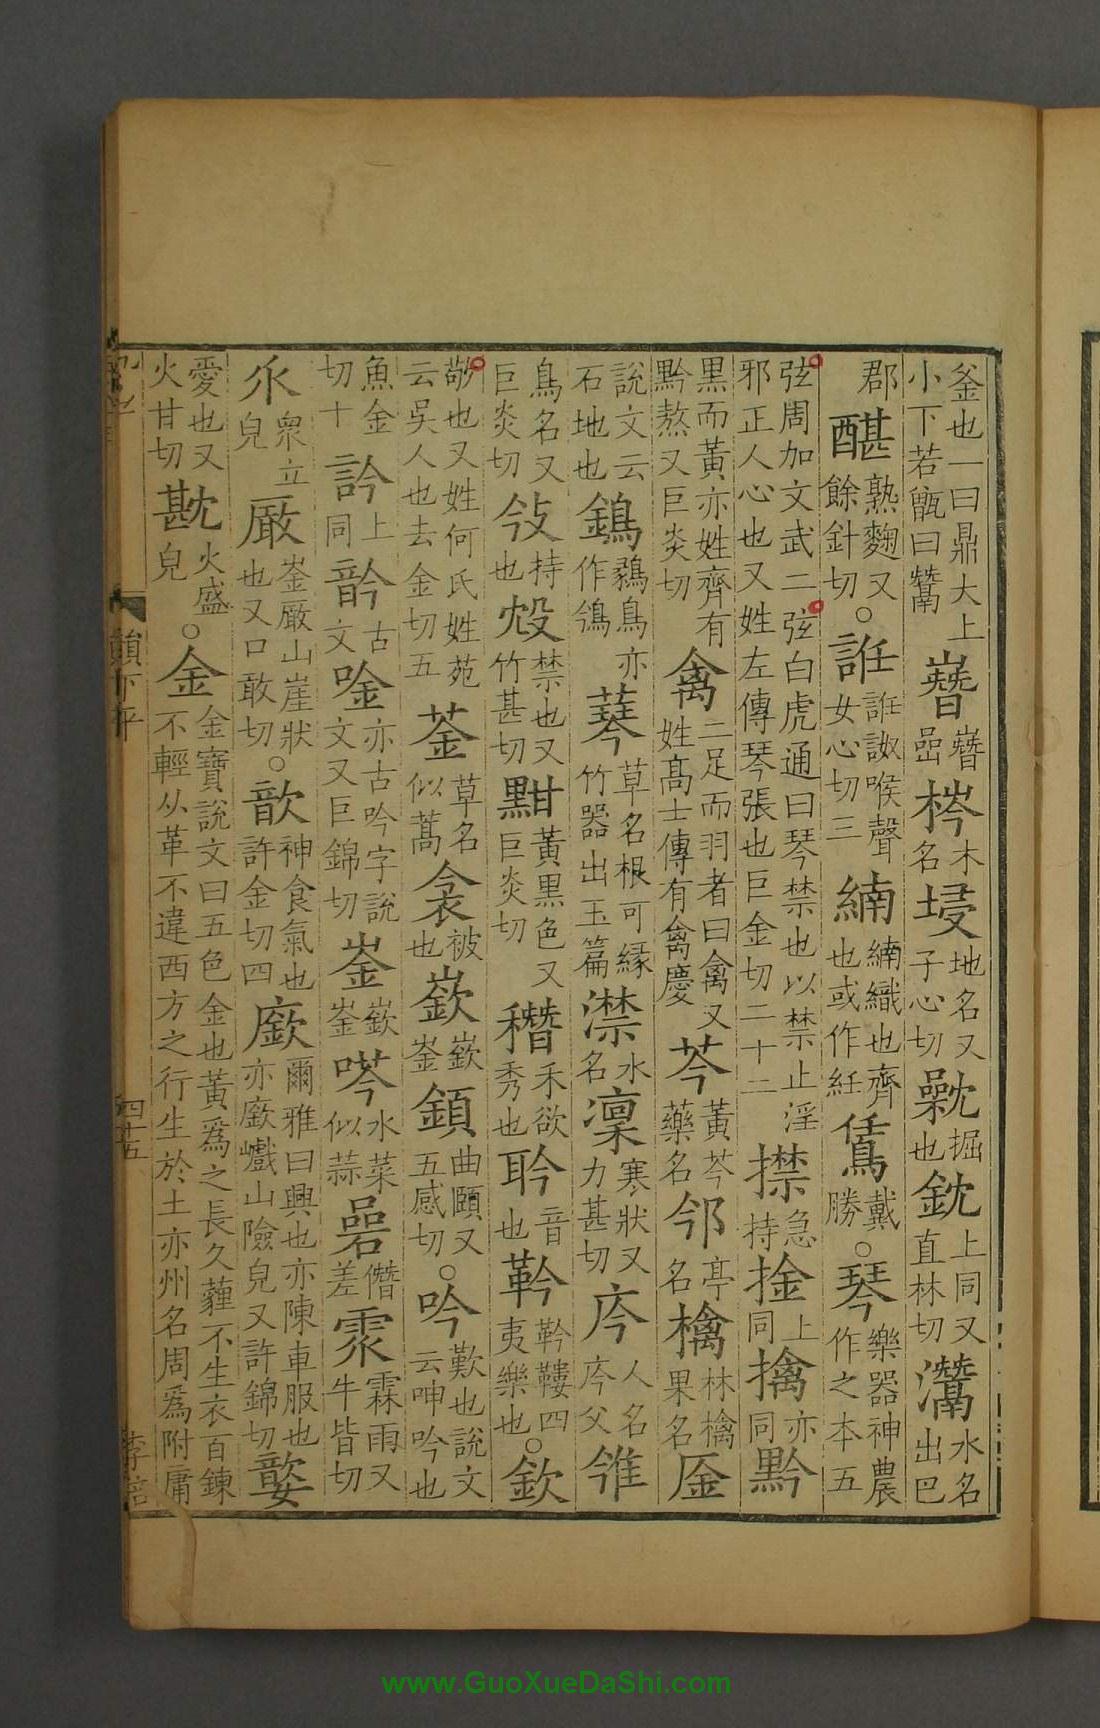 釜也一曰鼎大上小下若甑曰鬵 嶜嶜嵒 梣木名 埐地名又子心切 㔲掘也 鈂上同又直林切 灊水名出巴
郡 䤐熟麴又餘針切○䛘䛘諔喉聲女心切三 䋻䋻織也齊也或作紝 鵀戴勝○琴樂器神農作之本五
弦周加文武二弦白虎通曰琴禁也以禁止淫邪正人心也又姓左傳琴張也巨金切二十二 㩒急持 捦上同 擒亦同 黔
黑而黃亦姓齊有黔熬又巨炎切 禽二足而羽者曰禽又姓高士傳有禽慶 芩黃芩藥名 䢬亭名 檎林檎果名 厒
說文云石地也 鵭鶨鳥亦作鳹 䔷草名根可緣竹器出玉篇 澿水名 凜寒狀又力甚切 庈人名庈父 雂
鳥名又巨炎切 㪁持也 禁也又竹甚切 黚黃黑色又巨炎切 䅾禾欲秀也 耹音也 靲靲鞻四夷樂也○欽
敬也又姓何氏姓苑云吳人也去金切五 菳草名似蒿 衾被也 嶔嶔崟 顉曲頤又五感切○吟歎也說文云呻吟也
魚金切十 訡上同 䪩古文 唫亦古吟字說文又巨錦切 崟嶔崟 䓄水菜似蒜 碞僭差 霖雨又牛皆切
乑眾立皃 厰崟厰山崖狀也又口敢切○歆神食氣也許金切四 廞爾雅曰興也亦陳車服也亦廞巇山險皃又許錦切
愛也又火甘切 㪛火盛皃○金金寶說文曰五色金也黃爲之長久薶不生衣百鍊不輕从革不違西方之行生於土亦州名周爲附庸
韻下平
四十五
李倍
www.GuoXueDaShi.com